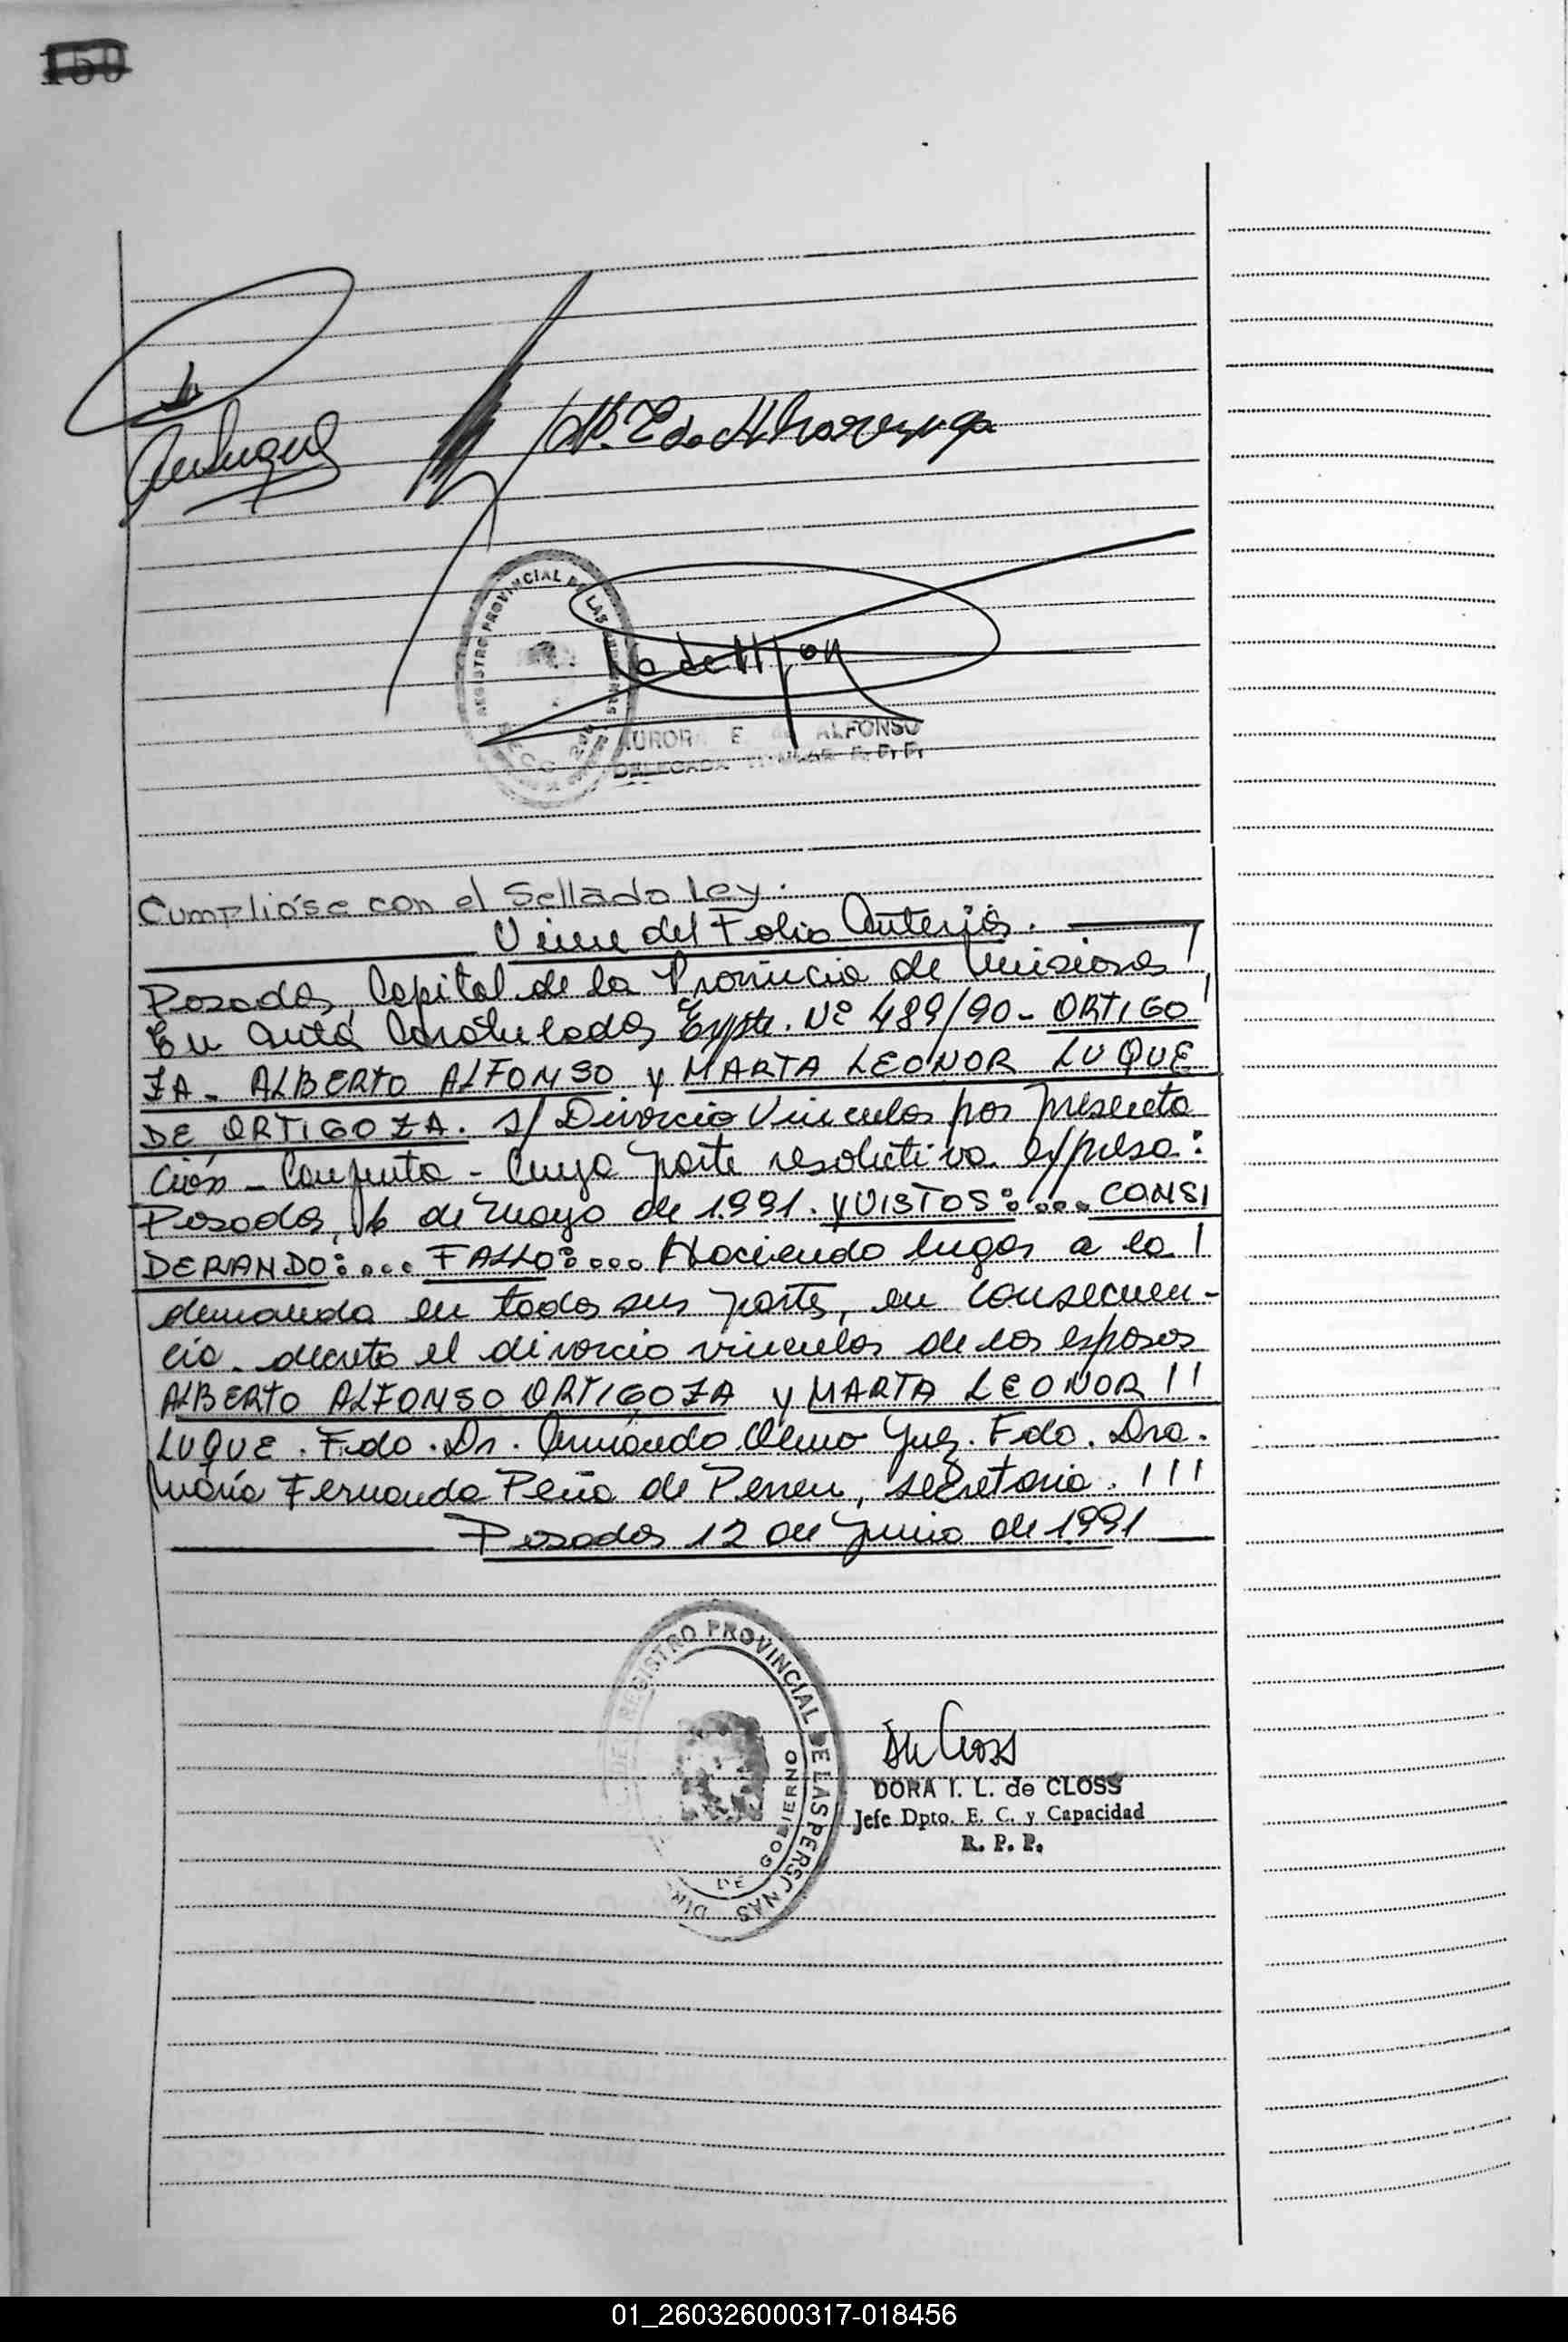 150
REGISTRO PROVINCIAL DE LAS PERSONAS
AURORA E ALFONSO
DELEGADA TITULAR R. P. P.
Cumplióse con el Sellado Ley.
Viene del Folio Anterior.
Posadas, Capital de la Provincia de Misiones
En autos Caratulados Expte. Nº 489/90 - ORTIGO
ZA - ALBERTO ALFONSO y MARTA LEONOR LUQUE
DE ORTIGOZA. s/ Divorcio Vincular por presenta
ción - Conjunta - Cuya parte resolutiva expresa:
Posadas, 6 de mayo de 1.991. Y VISTOS:... CONSI
DERANDO:... FALLO:... Haciendo lugar a la
demanda en todas sus partes, en consecuen-
cia decreto el divorcio vincular de los esposos
ALBERTO ALFONSO ORTIGOZA y MARTA LEONOR
LUQUE. Fdo. Dr. Armando Juez. Fdo. Dra.
María Fernanda Peña de Perren, secretaria.
Posadas 12 de Junio de 1991
REGISTRO PROVINCIAL DE LAS PERSONAS
DE GOBIERNO
DORA I. L. de CLOSS
Jefe Dpto. E. C. y Capacidad
R. P. P.
01_260326000317-018456